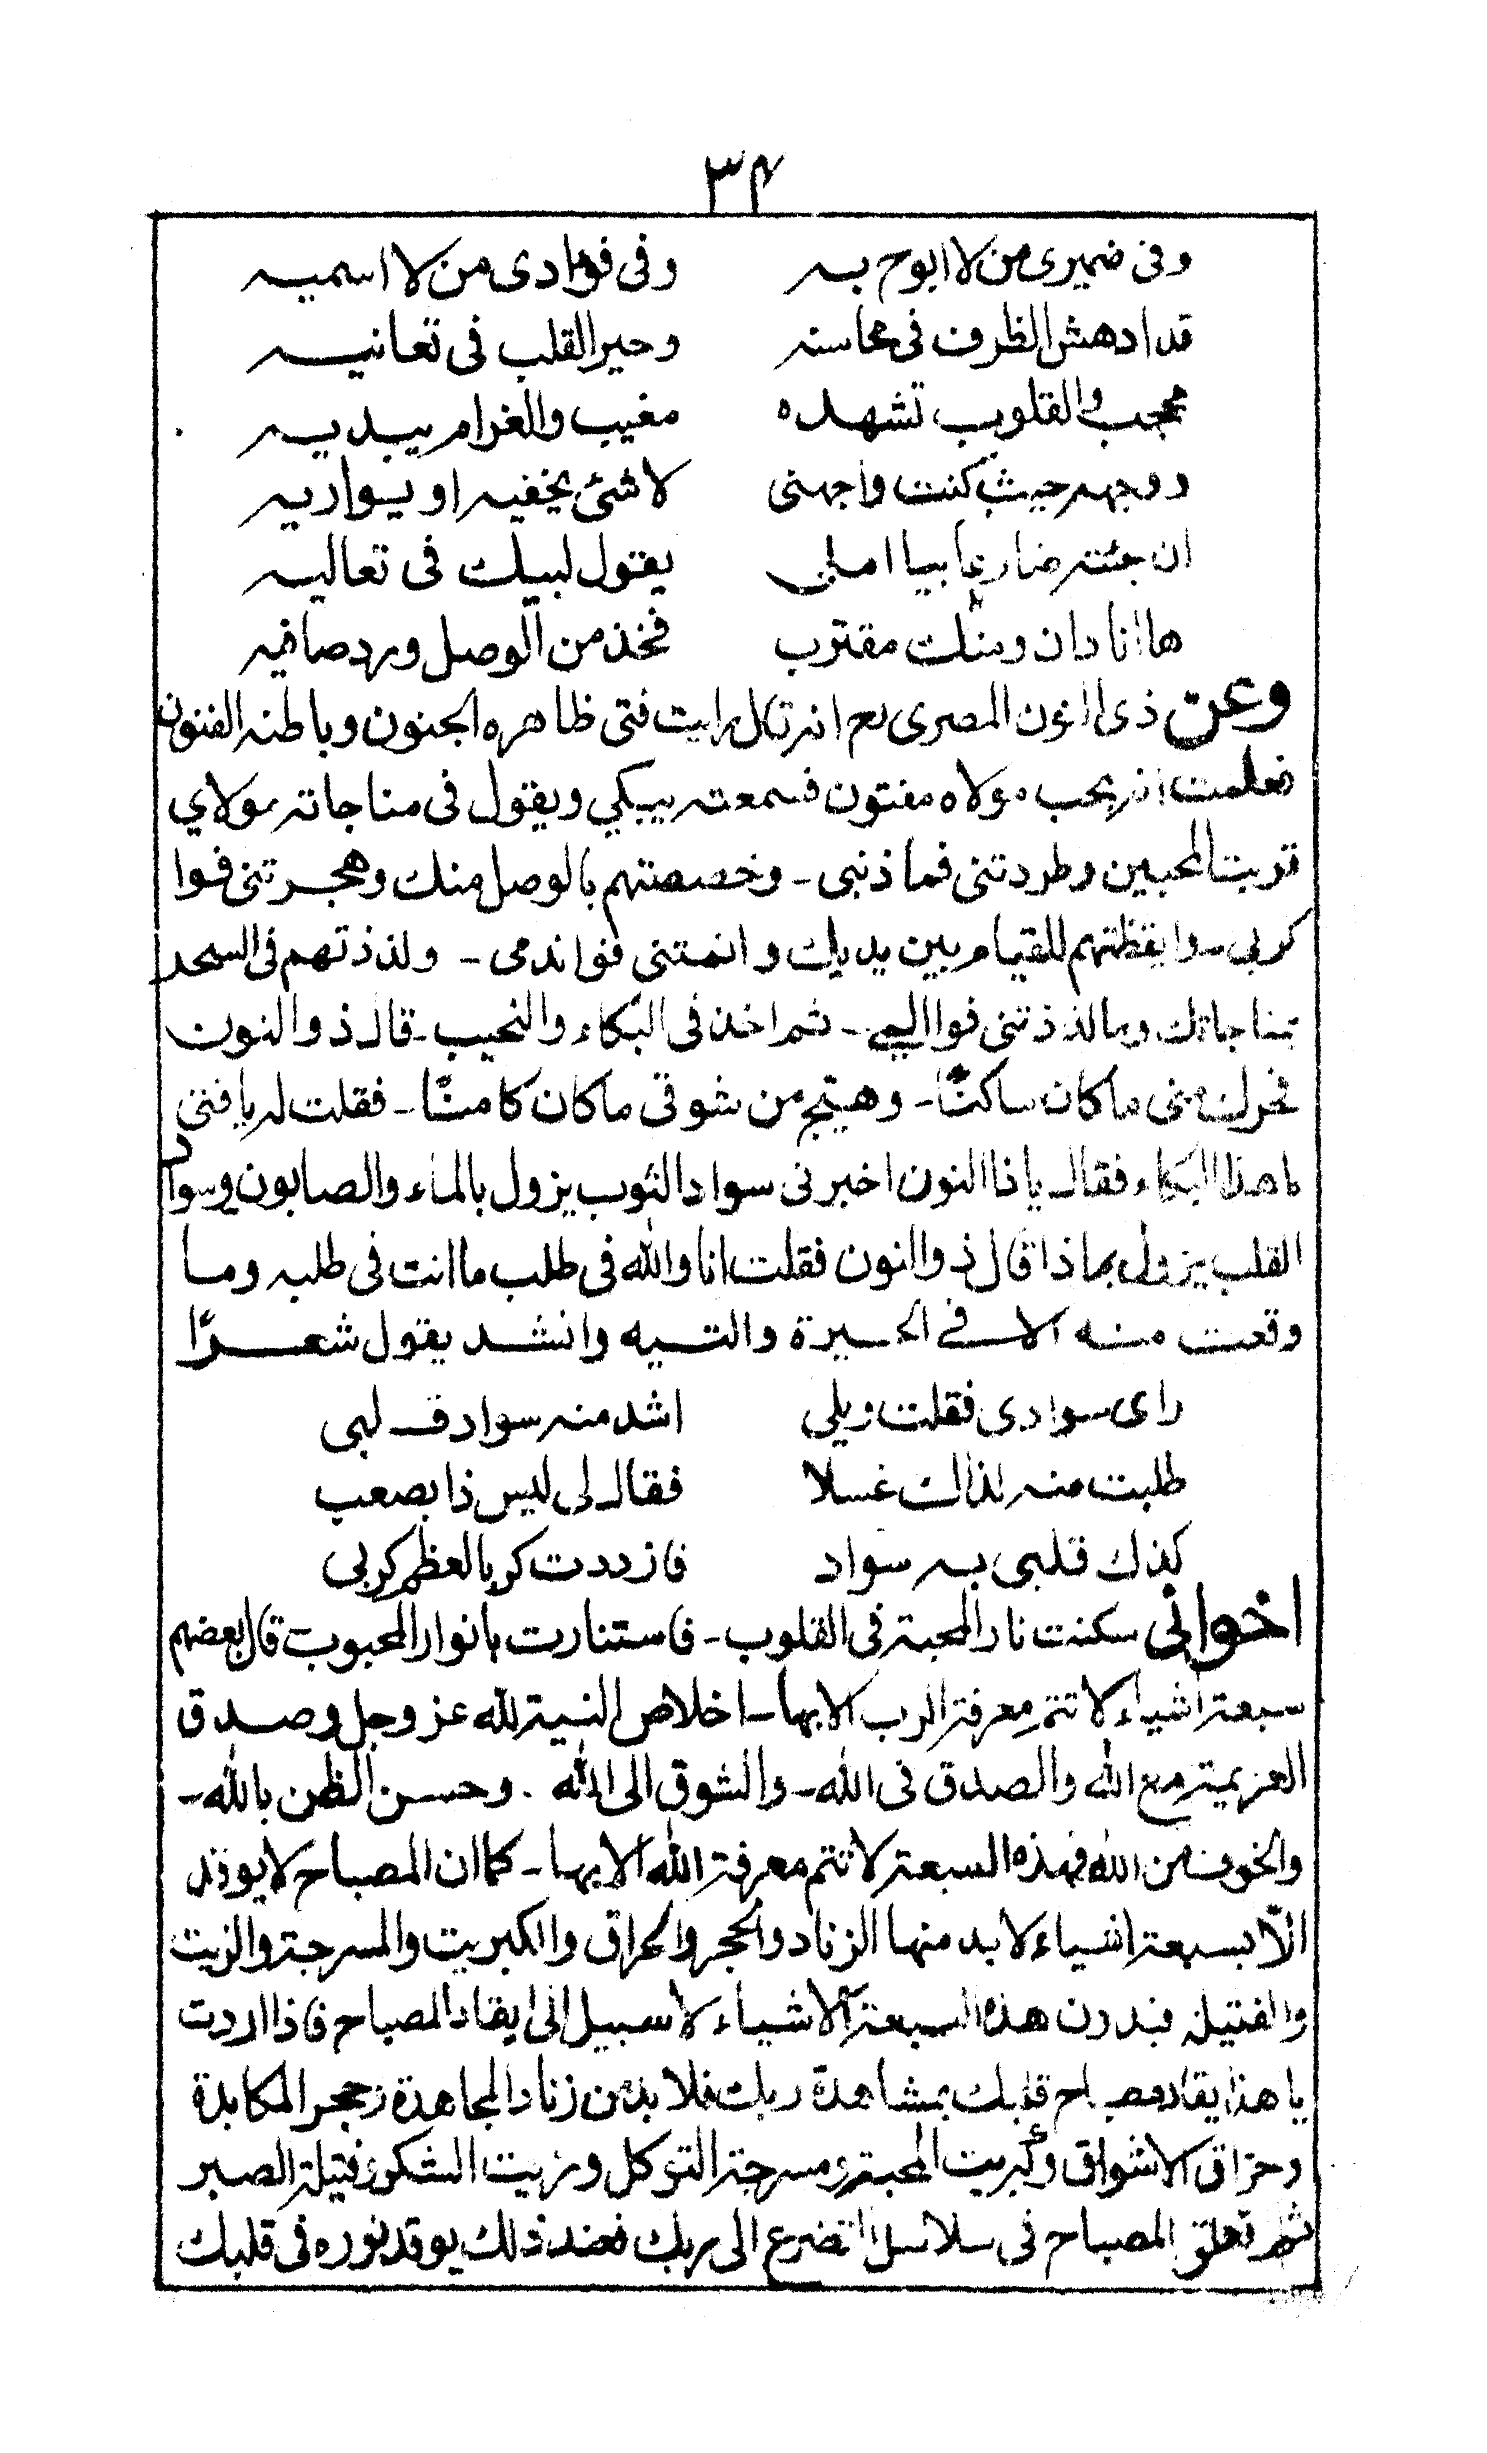 ٣٤
وفى ضميرى من لا ابوح به وفى فؤادى من لا اسميه
قد ادهش الظرف فى محاسنه وحير القلب فى تعانيه
محجب والقلوب تشهده مغيب والغرام يبديه
ووجهه حيث كنت واجهنى لا شئ يخفيه او يواريه
ان جئته ضارعا بيا املى يقول لبيك فى تعاليه
ها انا دان ومنك مقترب فخذ من الوصل ورد صافيه
وعن ذى النون المصرى انه قال رايت فتى ظاهره الجنون وباطنه الفنون
فعلمت انه بحب مولاه مفتون فسمعته يبكي ويقول فى مناجاته مولاي
قربت المحبين وطردتنى فما ذنبى - وخصصتهم بالوصل منك وهجرتنى فوا
كربى - وايقظتهم للقيام بين يديك وانمتنى فواندمى - ولذذتهم فى السحر
بمناجاتك وما لذذتنى فوا اليمى - ثم اخذ فى البكاء والنحيب - قال ذو النون
فحرك منى ما كان ساكنًا - وهيّج من شوقى ما كان كامنًا - فقلت له يا فتى
ما هذا البكاء فقال يا ذا النون اخبرنى سواد الثوب يزول بالماء والصابون وسواد
القلب يزول بما ذا قال ذو النون فقلت انا والله فى طلب ما انت فى طلبه وما
وقعت منه الا فى الحيرة والتيه وانشد يقول شعرًا
راى سوادى فقلت ويلى اشد منه سواد فـ لبى
طلبت منه لذاك غسلا فقال لى ليس ذا بصعب
كذك قلبى به سواد فازددت كربا لعظم كربى
اخوانى سكنت نار المحبة فى القلوب - فاستنارت بانوار المحبوب قال بعضهم
سبعة اشياء لا تتم معرفة الرب الا بها - اخلاص النية لله عز وجل وصدق
العزيمة مع الله والصدق فى الله - والشوق الى الله . وحسن الظن بالله -
والخوف من الله فهذه السبعة لا تتم معرفة الله الا بها - كما ان المصباح لا يوقد
الّا بسبعة اشياء لا بد منها الزناد والحجر والحراق والكبريت والمسرجة والزيت
والفتيلة فبدون هذه السبعة الاشياء لا سبيل الى ايقاد المصباح فاذا اردت
يا هذا يقاد مصباح قلبك بمشاهدة ربك فلا بد من زناد المجاهدة وحجر المكابدة
وحراق الاشواق وكبريت المحبة ومسرجة التوكل وزيت الشكر وفتيلة الصبر
ثم تعلق المصباح فى سلاسل التضرع الى ربك فعند ذلك يوقد نوره فى قلبك